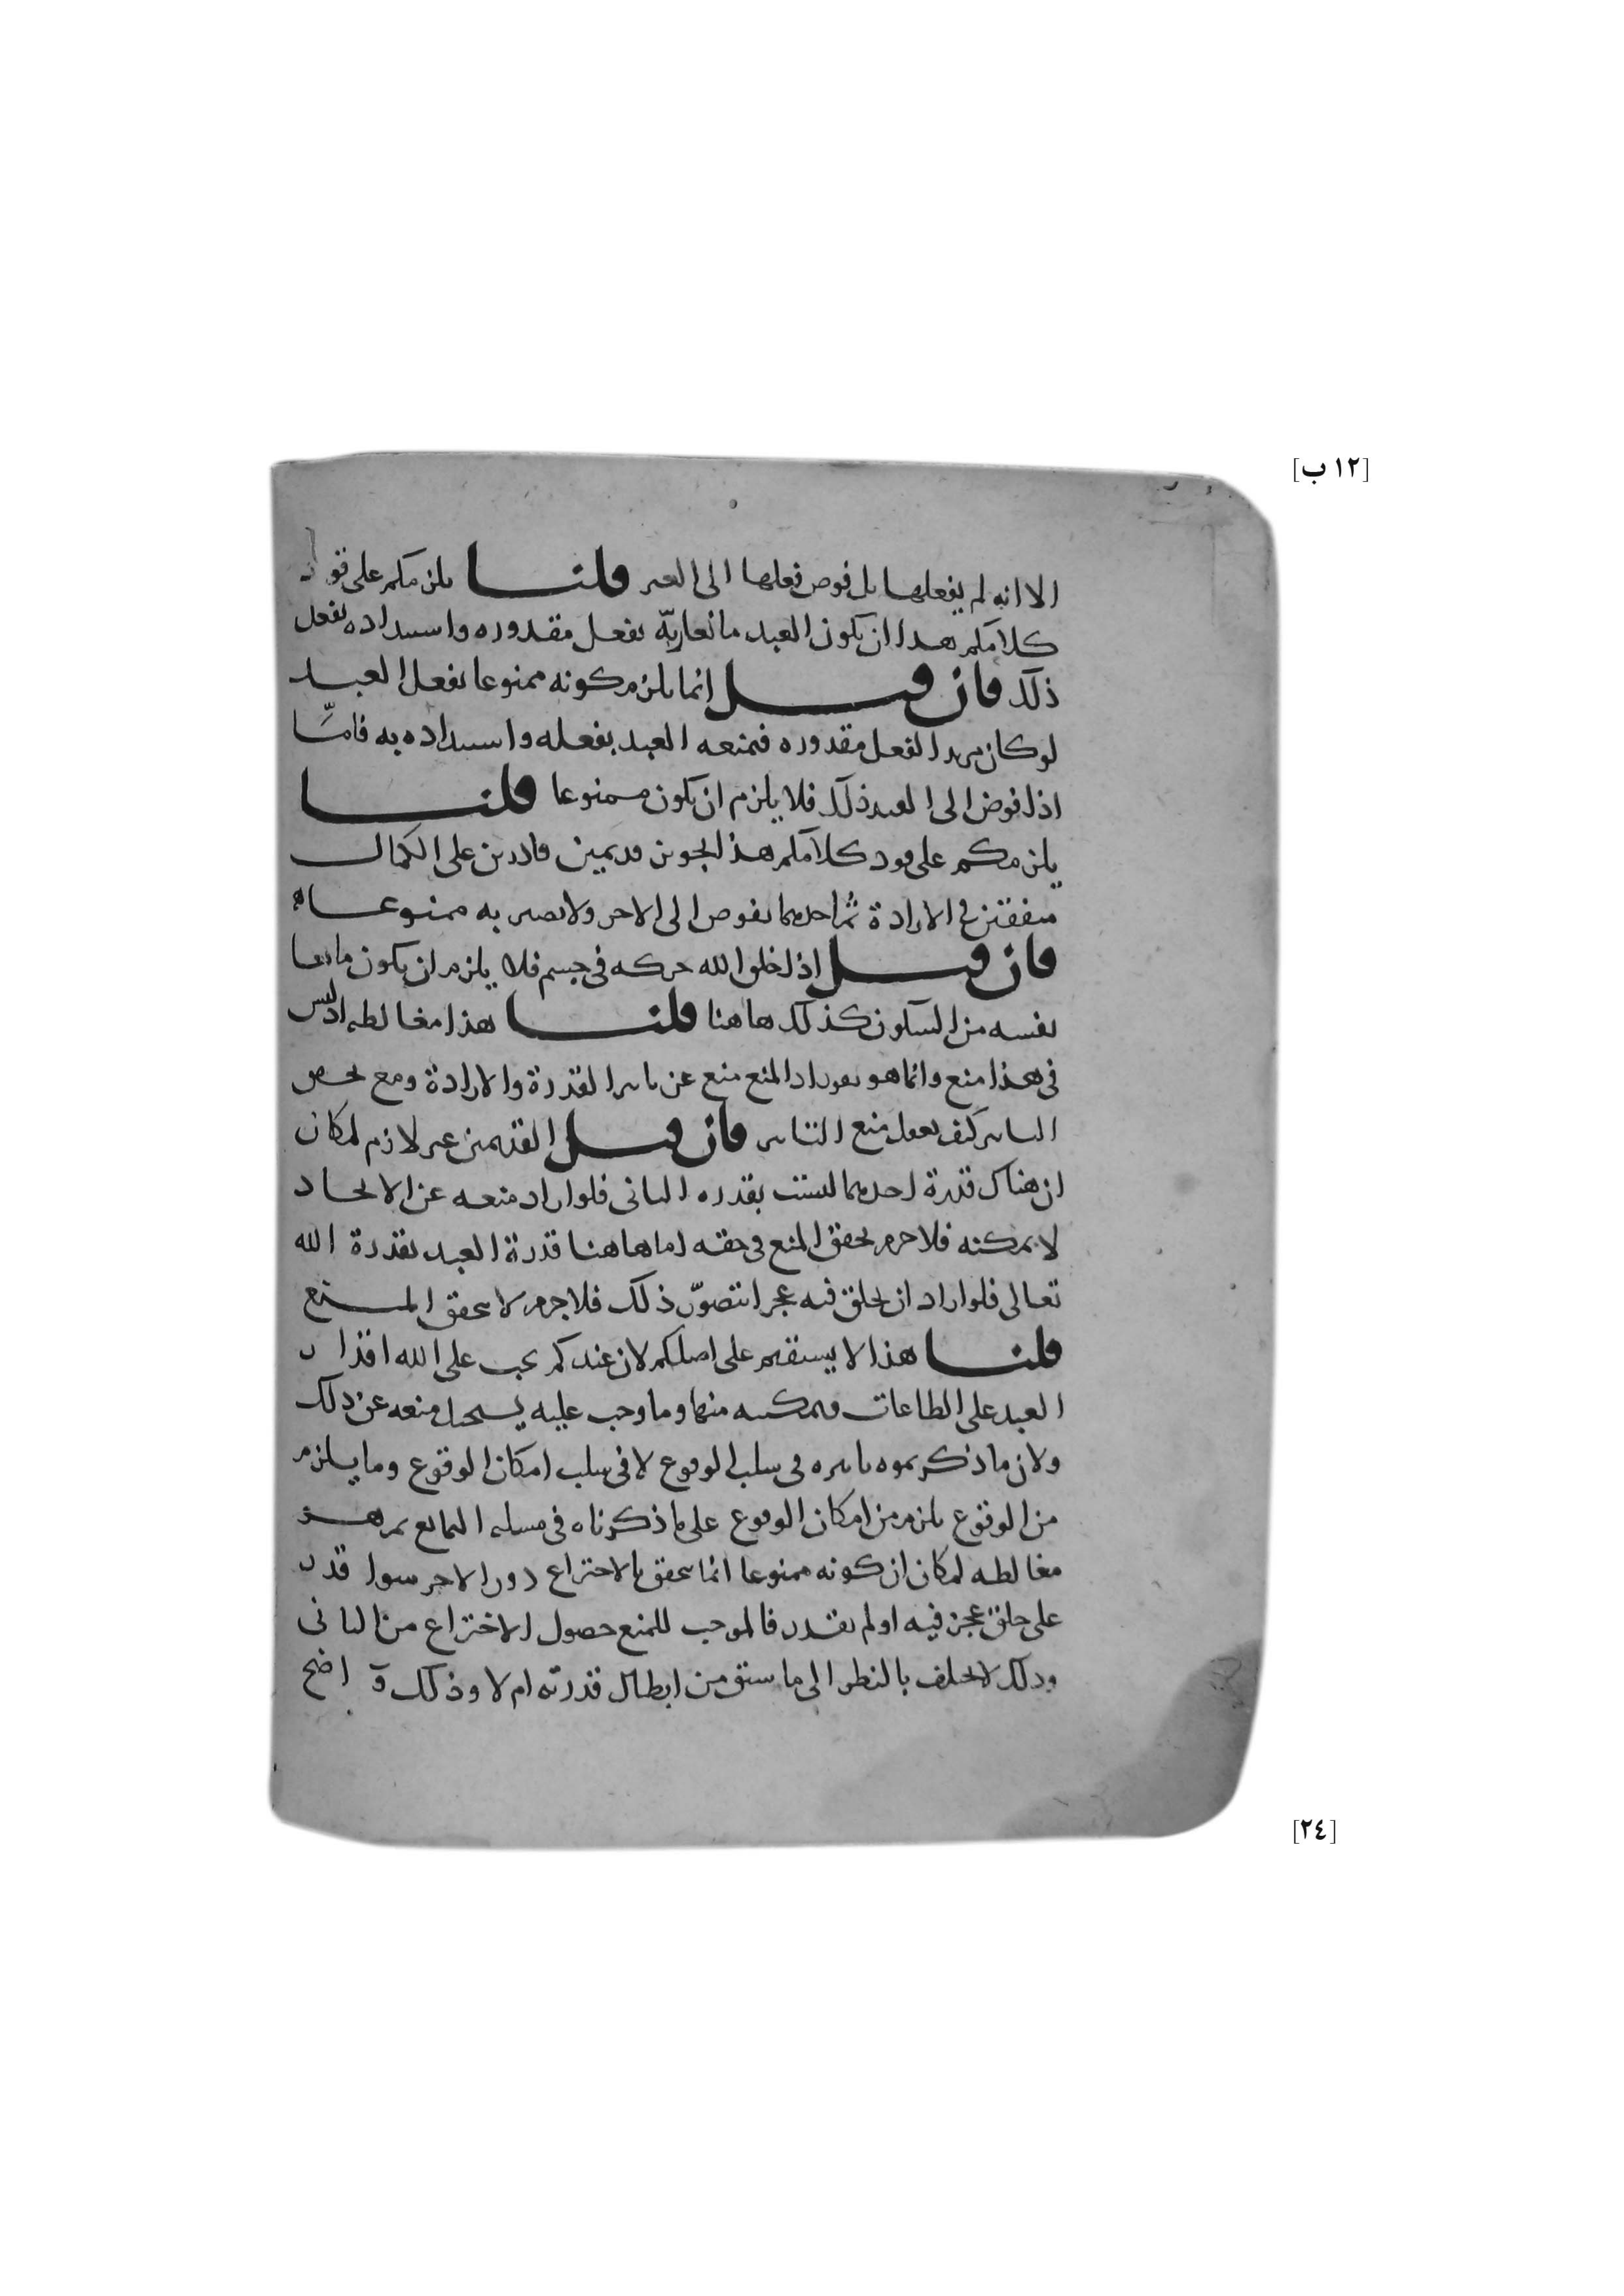 [١٢ ب]
الا انه لم يفعلها بل فوض فعلها الى العبد قلنا يلزمكم على قود
كلامكم هذا ان يكون العبد مانعا ربّه بفعل مقدوره واستبداده بفعل
ذلك فان قيل انما يلزم كونه ممنوعا بفعل العبد
لو كان مريدا لفعل مقدوره فمنعه العبد بفعله واستبداده به فامّا
اذا فوض الى العبد ذلك فلا يلزم ان يكون ممنوعا قلنا
يلزمكم على قود كلامكم هذا تجويز قديمين قادرين على الكمال
متفقين في الارادة ثم احدهما يفوض الى الاخر ولا يصير به ممنوعا
فان قيل اذا خلق الله حركه في جسم فلا يلزم ان يكون مانعا
نفسه من السكون كذلك هاهنا قلنا هذا مغالطه اذ ليس
في هذا منع وانما هو اذ المنع منع عن تاثير القدرة والارادة ومع تحصيل
التاثير كيف يعقل منع التاثير فان قيل القديمين غير لازم لمكان
ان هناك قدرة احدهما ليست بقدره الثاني فلو اراد منعه عن الايجاد
لا يمكنه فلا جرم تحقق المنع في حقه اما هاهنا قدرة العبد بقدرة الله
تعالى فلو اراد ان يخلق فيه عجزا يتصوّر ذلك فلا جرم لا يتحقق المنع
قلنا هذا لا يستقيم على اصلكم لان عندكم يجب على الله اقدار
العبد على الطاعات وتمكينه منها وما وجب عليه يستحيل منعه عن ذلك
ولان ما ذكرتموه تاثيره في سلب الوقوع لا في سلب امكان الوقوع وما يلزم
من الوقوع يلزم من امكان الوقوع على ما ذكرناه في مسئله التمانع ثم هذه
مغالطه لمكان ان كونه ممنوعا انما يتحقق بالاختراع دون الاخر سوا قدر
على خلق عجز فيه او لم يقدر فالموجب للمنع حصول الاختراع من الثاني
وذلك لا يختلف بالنظر الى ما سبق من ابطال قدرته ام لا وذلك واضح
[٢٤]